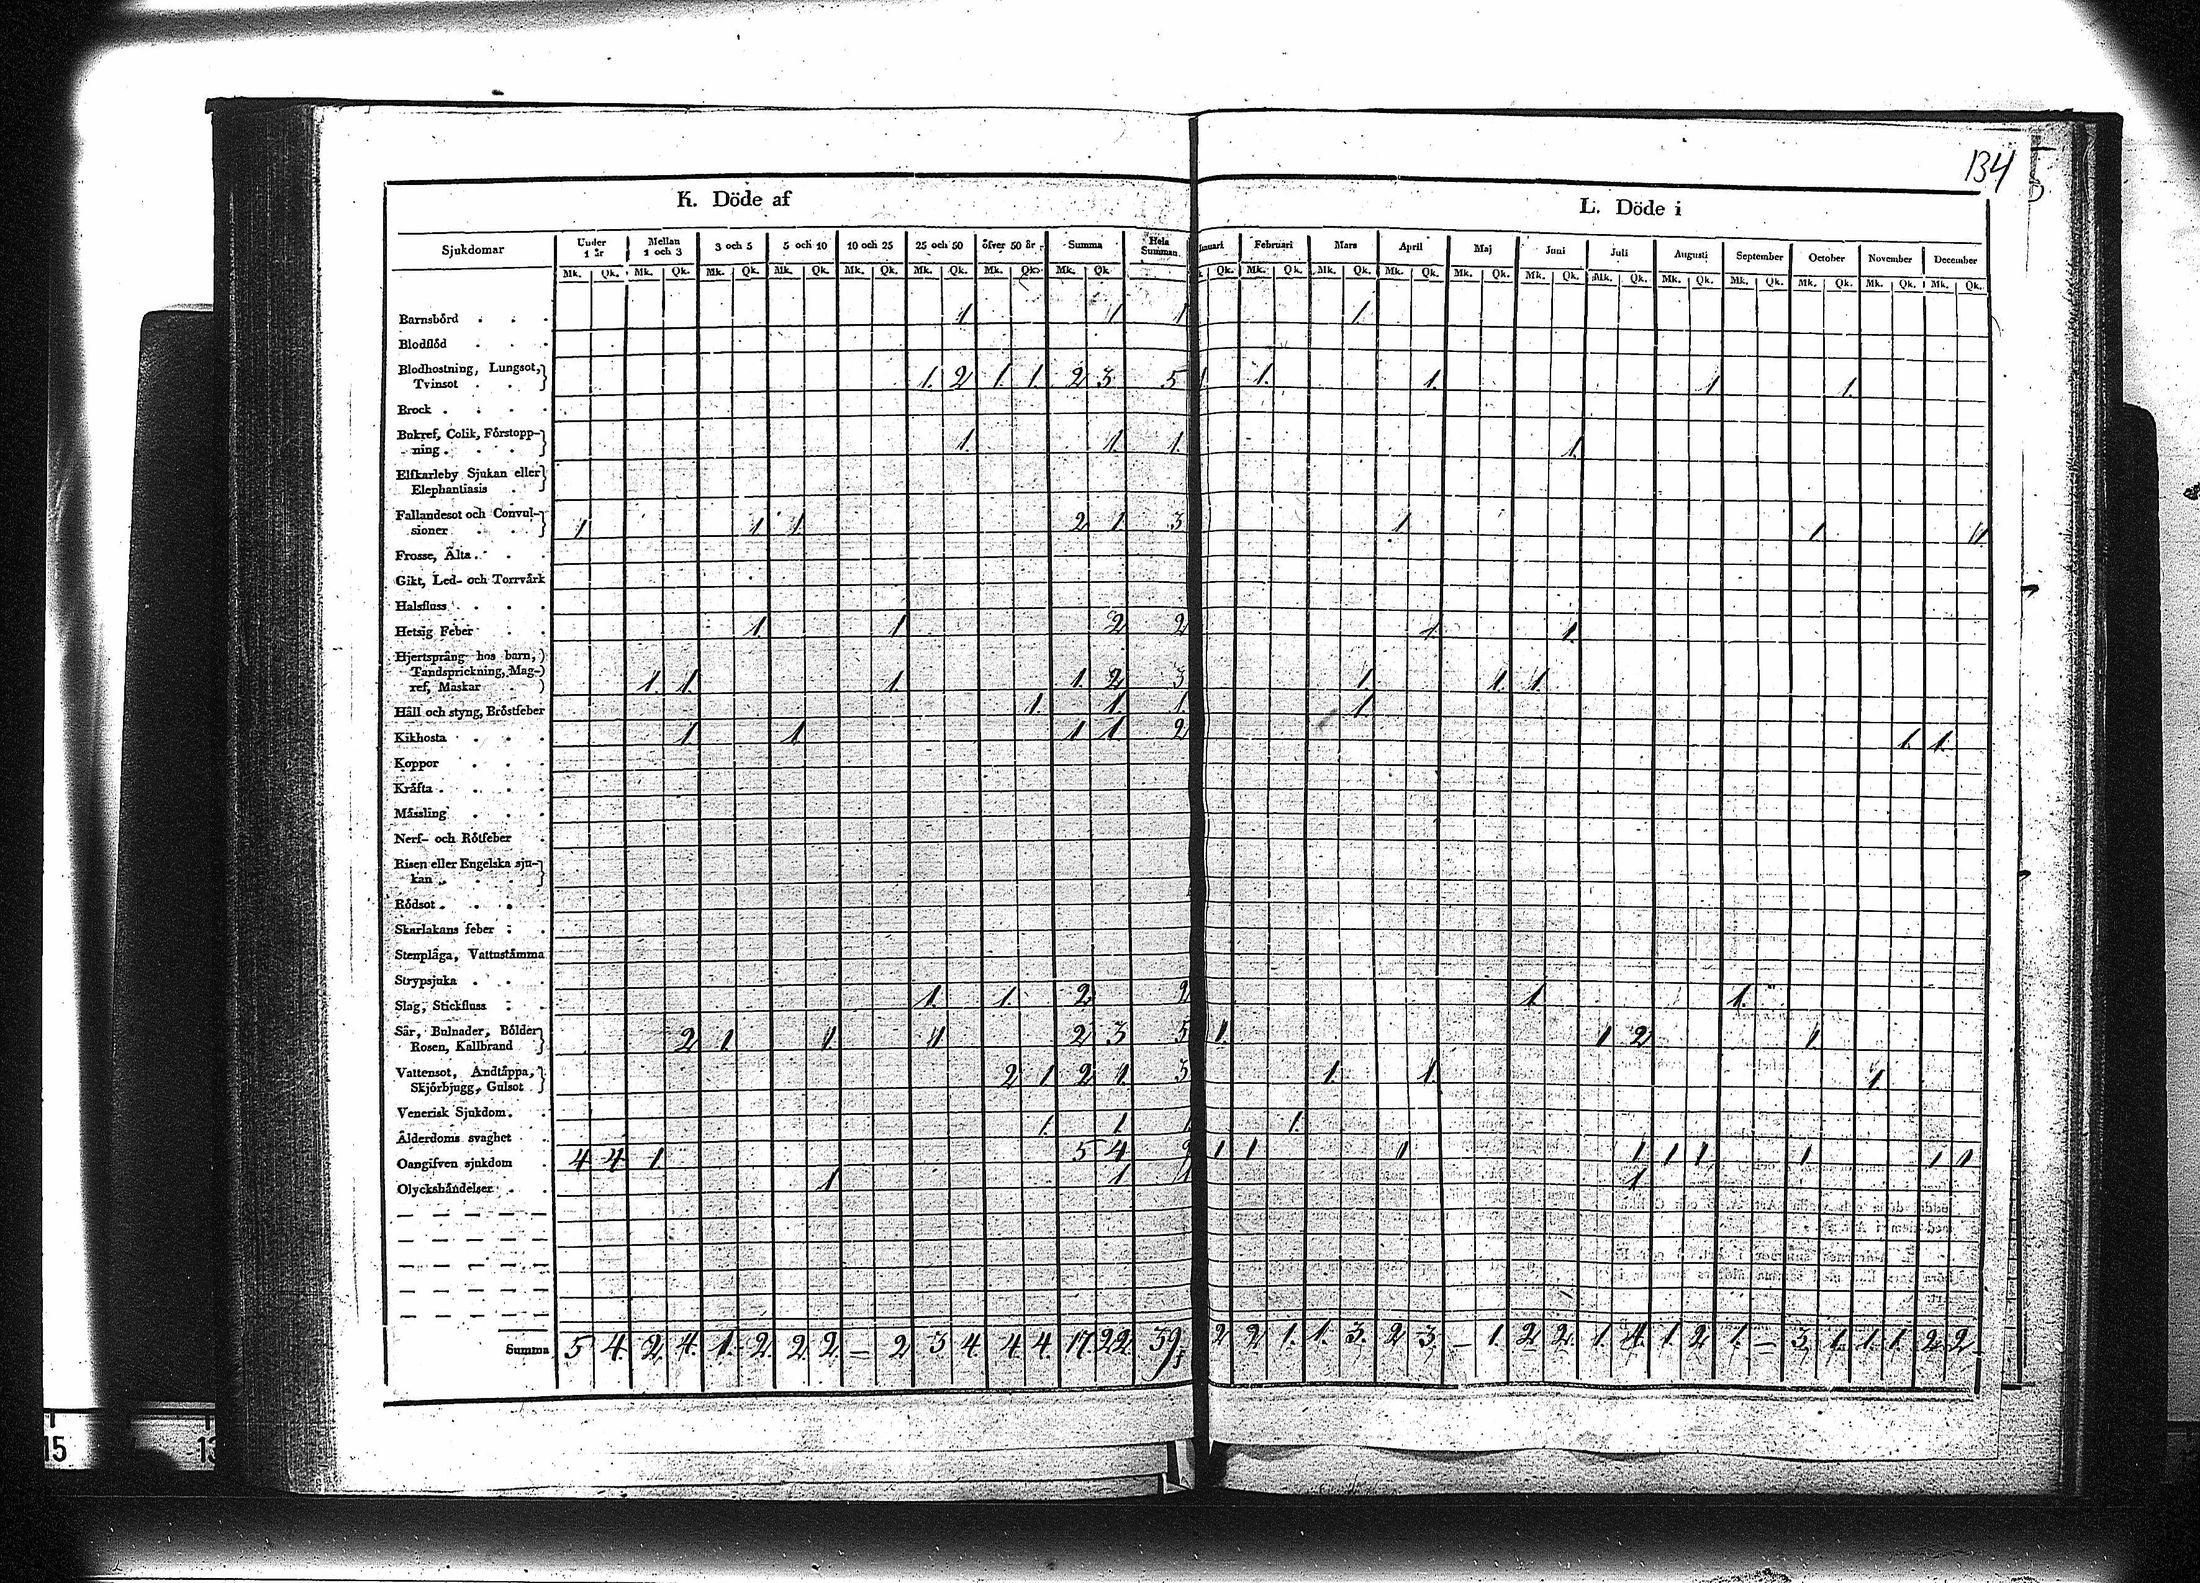 134
K. Döde af
L. Döde i
Sjukdomar Under 1 år Mellan 1 och 3 3 och 5 5 och 10 10 och 25 25 och 50 öfver 50 år Summa Hela Summan Februari Mars April Maj Juni Juli Augusti September October November December
Mk. Qk. Mk. Qk. Mk. Qk. Mk. Qk. Mk. Qk. Mk. Qk. Mk. Qk. Mk. Qk. Qk. Mk. Qk. Mk. Qk. Mk. Qk. Mk. Qk. Mk. Qk. Mk. Qk. Mk. Qk. Mk. Qk. Mk. Qk. Mk. Qk. Mk. Qk.
Barnsbörd . . . 1 1 1 1
Blodflöd . . .
Blodhostning, Lungsot,
Tvinsot . . . 1. 2 1. 1. 2 3 5 1 1. 1. 1 1.
Brock . . . .
Bukref, Colik, Förstopp-
ning . . . . 1. 1. 1. 1.
Elfkarleby Sjukan eller
Elephantiasis .
Fallandesot och Convul-
sioner . . . 1 1 1. 2 1. 3 1 1. 1
Frosse, Älta . . .
Gikt, Led- och Torrvärk
Halsfluss . . . .
Hetsig Feber . . 1 1 2 2 1 1.
Hjertsprång hos barn,
Tandsprickning, Mag-
ref, Maskar . 1. 1. 1. 1. 2 3 1. 1. 1.
Håll och styng, Bröstfeber 1. 1 1 1.
Kikhosta . . . 1. 1. 1 1. 2 1. 1.
Koppor . . .
Kräfta . . . .
Mässling . . .
Nerf- och Rötfeber .
Risen eller Engelska sju-
kan . . . .
Rödsot . . . .
Skarlakans feber . .
Stenplåga, Vattnstämma
Strypsjuka . . .
Slag, Stickfluss . . 1. 1. 2 2 1. 1.
Sår, Bulnader, Bölder
Rosen, Kallbrand 2 1. 1. 1 2 3 5 1. 1 2 1.
Vattensot, Andtäppa,
Skjörbjugg, Gulsot . 2 1 2 1. 3 1. 1. 1.
Venerisk Sjukdom . .
Ålderdoms svaghet . . 1. 1 1 1.
Oangifven sjukdom . 4 4 1 5 4 9 1 1 1 1 1 1 1 1 1
Olyckshändelser . . 1 1 1 1
Summa 5 4. 2. 4. 1. 2. 2. 2. — 2 3 4. 4 4. 17. 22. 39. 2 2 1. 1. 3. 2 3. — 1. 2 2. 1. 4. 1. 2 1. — 3. 1. 1. 1. 2. 2.
15
13